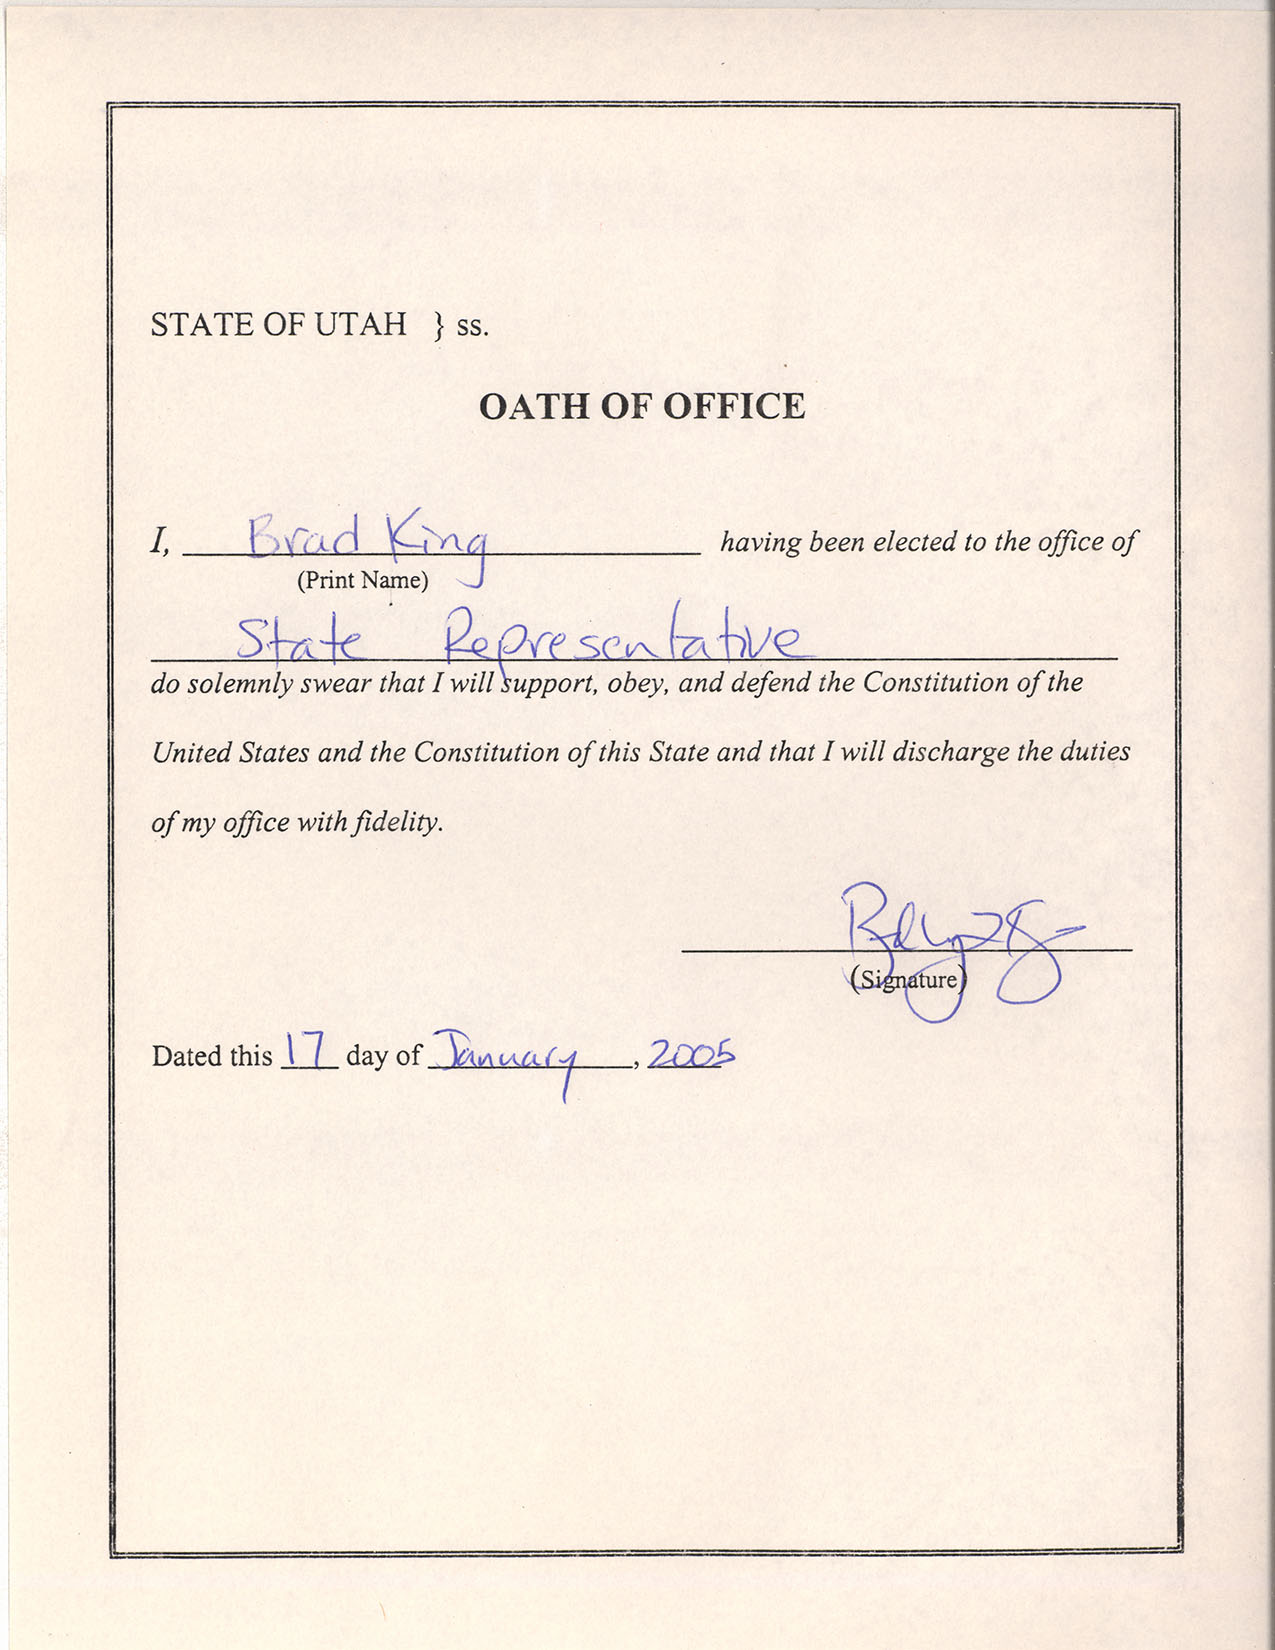 STATE OF UTAH } ss.
OATH OF OFFICE
I, Brad King having been elected to the office of
(Print Name)
State Representative
do solemnly swear that I will support, obey, and defend the Constitution of the
United States and the Constitution of this State and that I will discharge the duties
of my office with fidelity.
(Signature)
Dated this 17 day of January, 2005